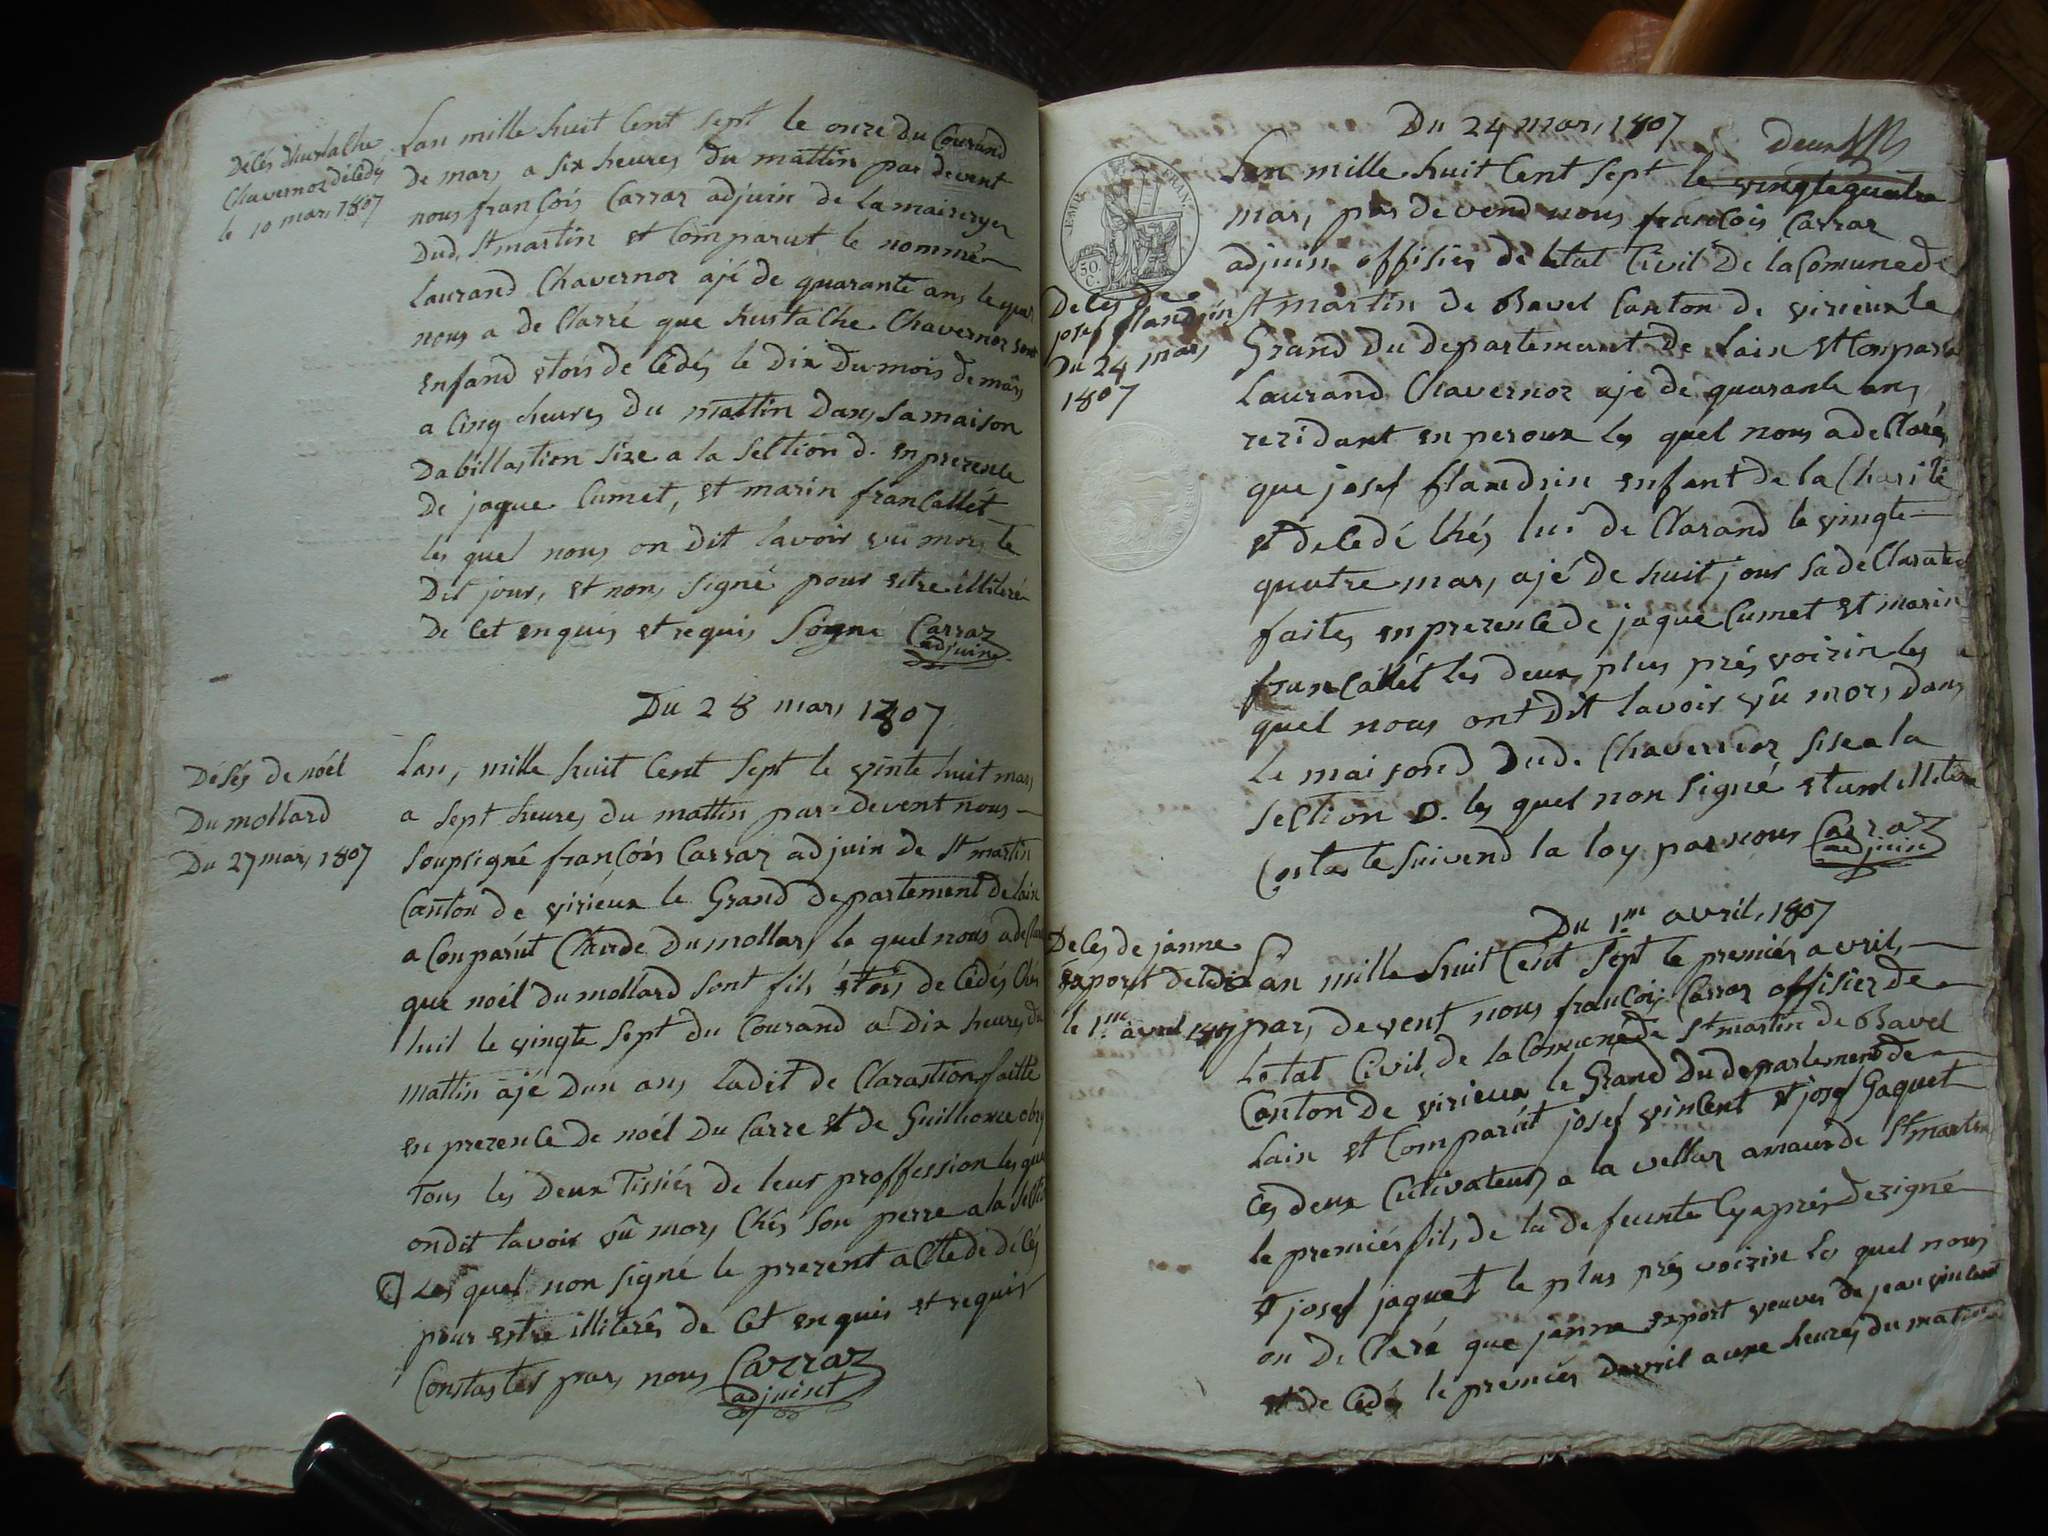 Délés dhustalhe
Chavernoz dédédé
le 10 mars 1807
Lan mille huit Cent Sept le onze du Courand
De mars a six heures du mattin par devent
nous franÇois Carraz adjuin de Lamaireryer
Dud. St martin et Comparut le nommé
Laurand Chavernoz ajé de quarante ans le quel
nous a de Clarré que hustalhe Chavernoz sont
enfand etois de Cédés le Dix Dumois de mars
a Cinq heures Du mattin Dans Samaison
Dabillastion Size a la Seltion d. en prezence
De jaque Cumet, et marin franCallet
les quel nous on Dit lavoir vu mors le
Dit jours, et nons Signé pour estre illiteré
De Cet enquis et requis Signe Carraz
adjuint
Du 28 mars 1807
Désés de noél
Dumollard
Du 27 mars 1807
Lan, mille huit Cent Sept le vinte huit mars
a Sept heures du mattin par devent nous
Soupsigné franÇois Carraz adjuin de St martin
Canton de virieux le Grand departement de lain
a Conparut Claude Dumollars le quel nous a de Cla
que noél Dumollard Sont fils étois de Cédés Chés
luil le vingte Sept du Courand a Dix heures du
mattin ajé Dun ans Ladit de Clarastion faitte
en prezence de noél Du Carre et de Guilliaume
Tous les Deux Tissiér de leur proffession les quel
ondit lavoir vû mors Chés Son perre a la Selti
C) Les quel non Signé le prezent aCtte de déCés
pour estre illiterés de Cet enquis et requis
Constaster pars nous Carraz
adjuinct
Du 24 mars 1807
deux
EMPIRE FRAN
50.
C.
DeCes de
josef flandrin
Du 24 mars
1807
Lan mille huit Cent Sept le vingtequatre
mars, pars devend nous franÇois Carraz
adjuin offisier de letat Civil De la Comune de
St martin de Bavel Canton de virieux le
Grand Du departement De Lain et Conparu
Laurand Chavernoz ajé de quarante ans
rezidant en peroux les quel nous a de Claré
que josef flandrin enfant de la Charité
et deCedé Chés lui de Clarand le vingte
quatre mars, ajé De huit jour Sa de Claration
faites enprezence de jaque Cumet et marin
franCallet les deux plus prés voizin les
quel nous ont Dit lavoir vû mors dans
Le maisond Dud. Chavernoz size a la
Seltion D. les quel non Signé etant illitére
Costaste Suivend la loy par nous Carraz
adjuin
Du 1er avril, 1807
DeCes de janne
Export deCédé
le 1er avril 1807
Lan mille huit Cent Sept le premiér avril,
pars, devent nous franÇois Carraz offisier de
Letat Civil de la Comune de St martin de Bavel
Canton De virieux le Grand Du departement de
Lain et Comparût josef vinCent et josef Gaquet
Ces deux Cultivateurs a la vellaz amaux de St martin
le premiér fils de la defeunte Cyaprés dezigné
et josef jaquet le plus prés voizin les quel nous
on DeClaré que janne export veuves de jean vincent
et deCédés le premiér davril a une heures du mattin